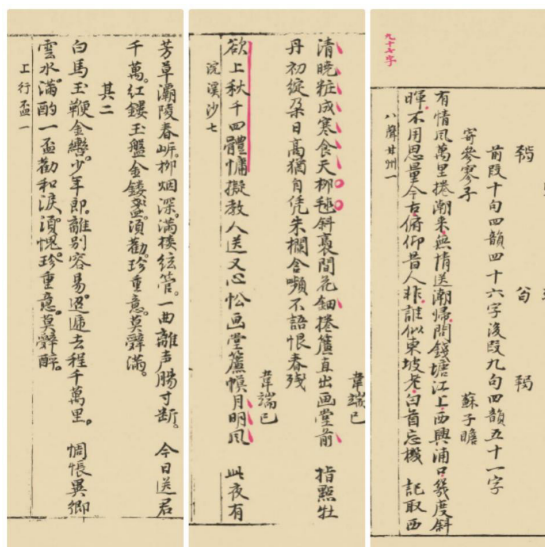 前段十句四韻四十六字後段九句四韻五十一字
寄參寥子 蘇子瞻
有情風萬里捲潮來無情送潮歸問錢塘江上西興浦口幾度斜
暉不用思量今古俯仰昔人非誰似東坡老白首忘機 記取西
八聲甘州一
九十七字
韋端己
清曉粧成寒食天柳毬斜裊間花鈿捲簾直出画堂前 指點牡
丹初綻朵日高猶自凭朱欄含嚬不語恨春殘
韋端己
欲上秋千四體慵擬教人送又心忪画堂簾幙月明風 此夜有
浣溪沙七
芳草灞陵春岸柳烟深滿楼絃管。一曲離声腸寸断。 今日送君
千萬。紅鏤玉盤金鏤盞。須勸珍重意。莫辭滿。
其二
白馬玉鞭金轡。少年郎。離別容易。迢遞去程千萬里。 惆悵異鄉
雲水。滿酌一盃勸和淚。須愧珍重意。莫辭醉。
上行盃一